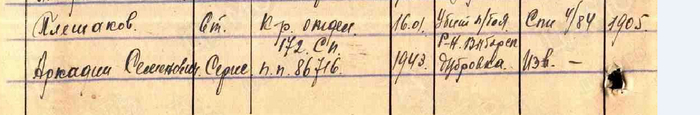 Плешаков. Ст. К-р. отдел. 16.01. Убит п/боя Спи 4/84 1905.
172. Сп. Р-н.
Аркадий Семенович. Серж. п.п. 86716. 1943. Дубровка. Изв. —